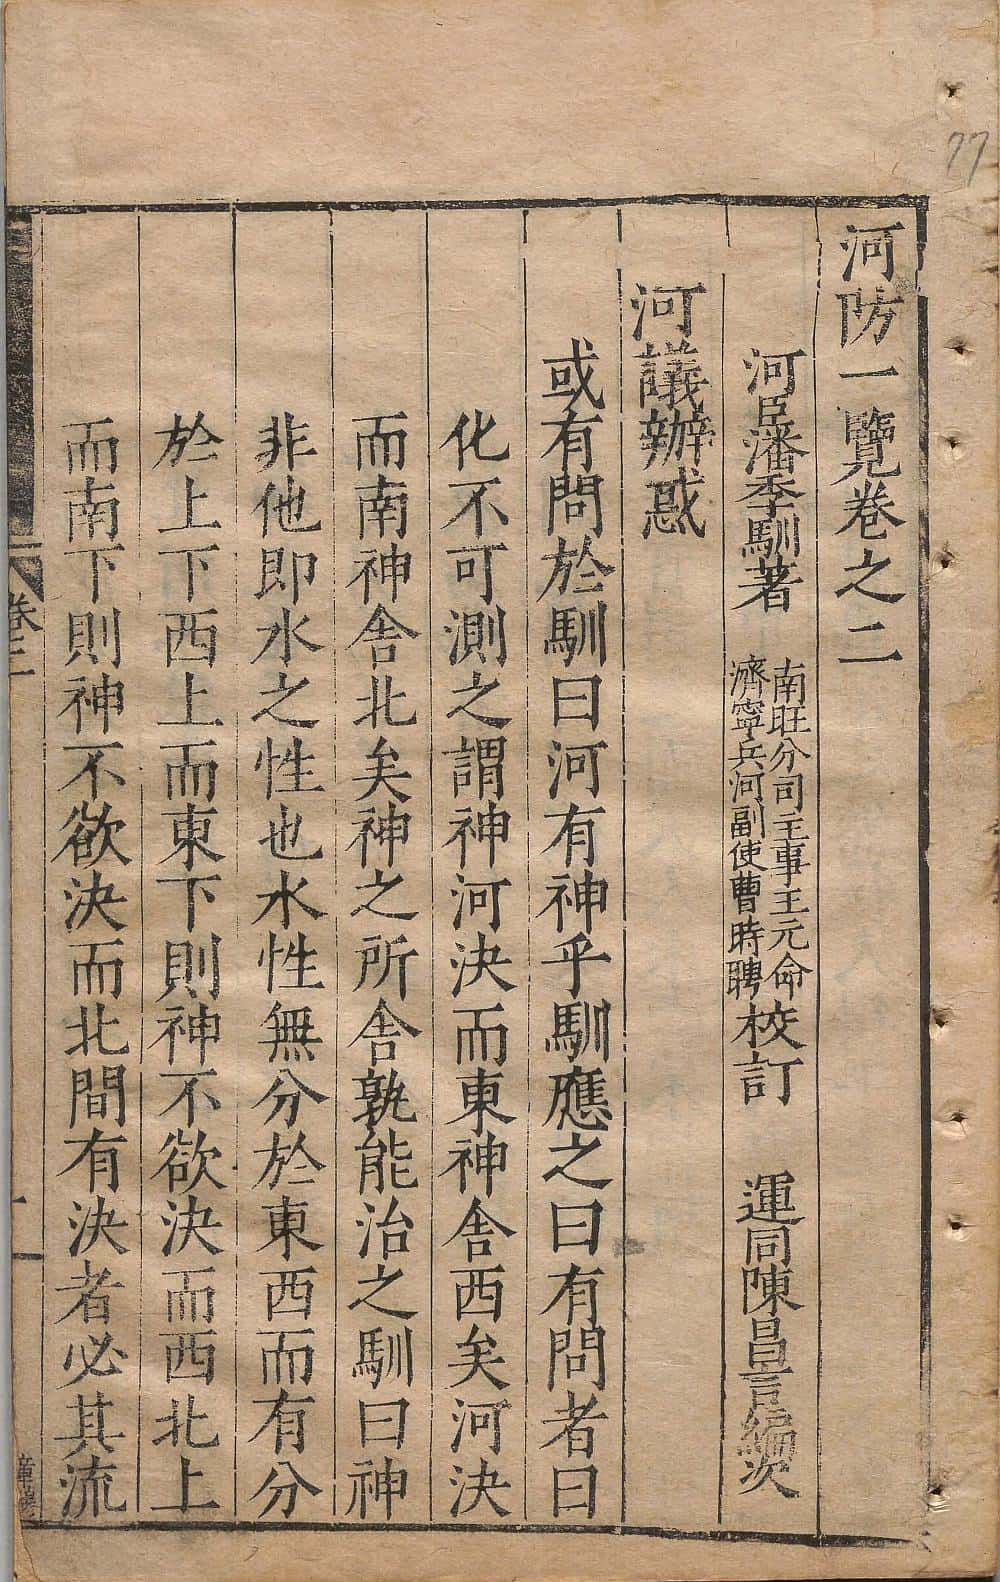 河防一覽卷之二
河臣潘季馴著 南旺分司主事王元命 濟寧兵河副使曹時聘 校訂 運同陳昌言編次
河議辦惑
或有問於馴曰河有神乎馴應之曰有問者曰
化不可測之謂神河決而東神舍西矣河決
而南神舍北矣神之所舍孰能治之馴曰神
非他即水之性也水性無分於東西而有分
於上下西上而東下則神不欲決而西北上
而南下則神不欲決而北間有決者必其流
卷二
一
77